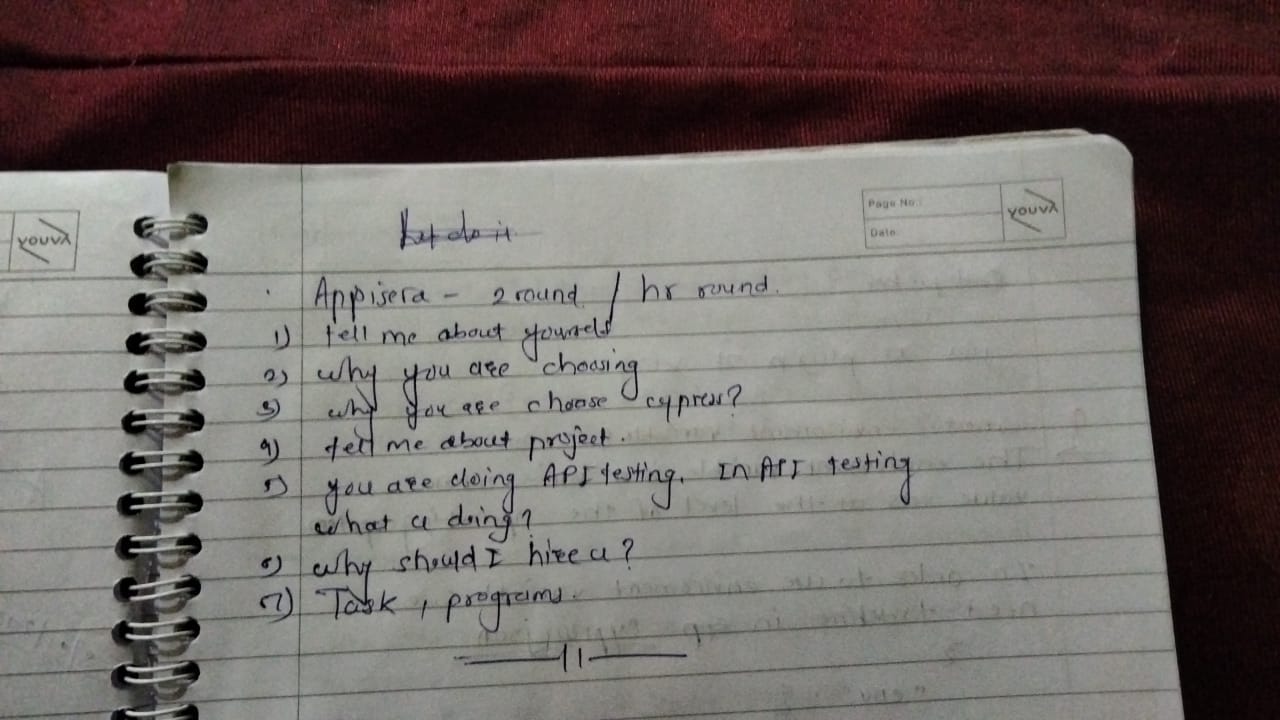 youva
Page No.:
Date:
youva
Appisera - 2 round / hr round.
1) tell me about yourself
2) why you are choosing
3) why you are choose cypress?
4) tell me about project.
5) you are doing API testing. In API testing
what u doing?
6) why should I hire u?
7) Task, programs.